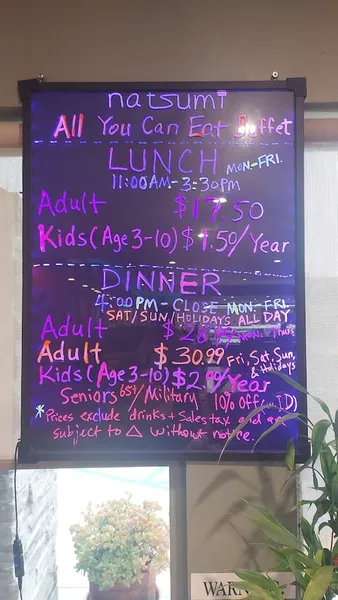 natsumi
All You Can Eat Buffet
LUNCH MON-FRI.
11:00AM-3:30PM
Adult $17.50
Kids (Age 3-10) $1.50/Year
DINNER
4:00PM-CLOSE MON-FRI
SAT/SUN/HOLIDAYS ALL DAY
Adult
Adult $30.99 Fri, Sat, Sun, & Holidays
Kids (Age 3-10) $2.99/Year
Seniors 65+/Military 10% Off I.D)
*Prices exclude drinks + Sales tax and are
subject to △ without notice.